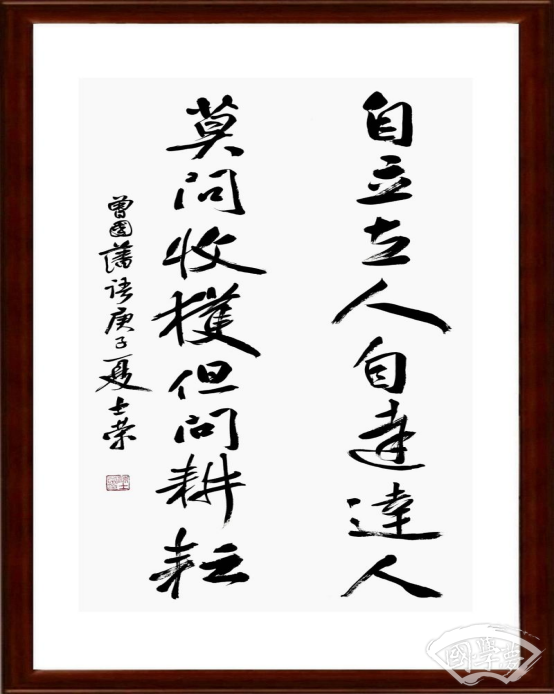 自立立人自達達人
莫問收穫但問耕耘
曾國藩語庚子夏士榮
國學夢